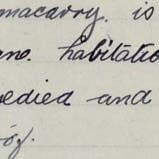 macarry. is
habitatio
edied and